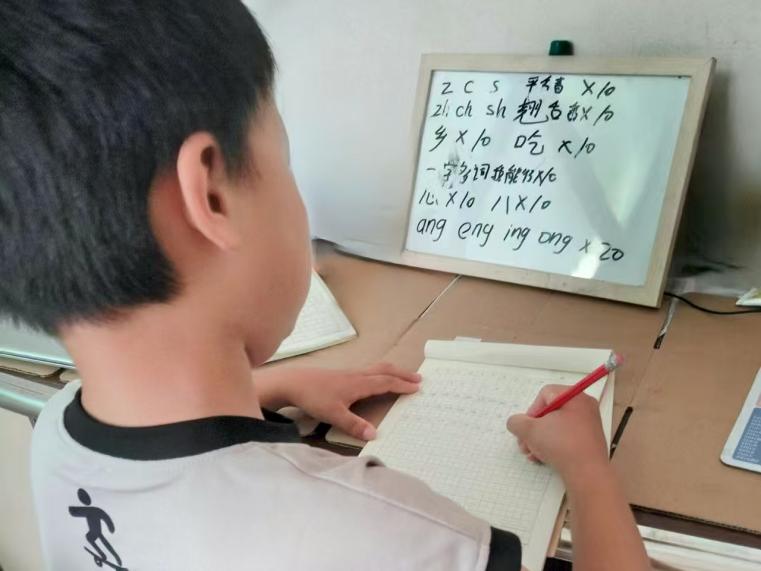 z c s 平舌音 ×10
zh ch sh 翘舌音×10
乡×10 吃×10
一字多词×10
心×10 八×10
ang eng ing ong ×20